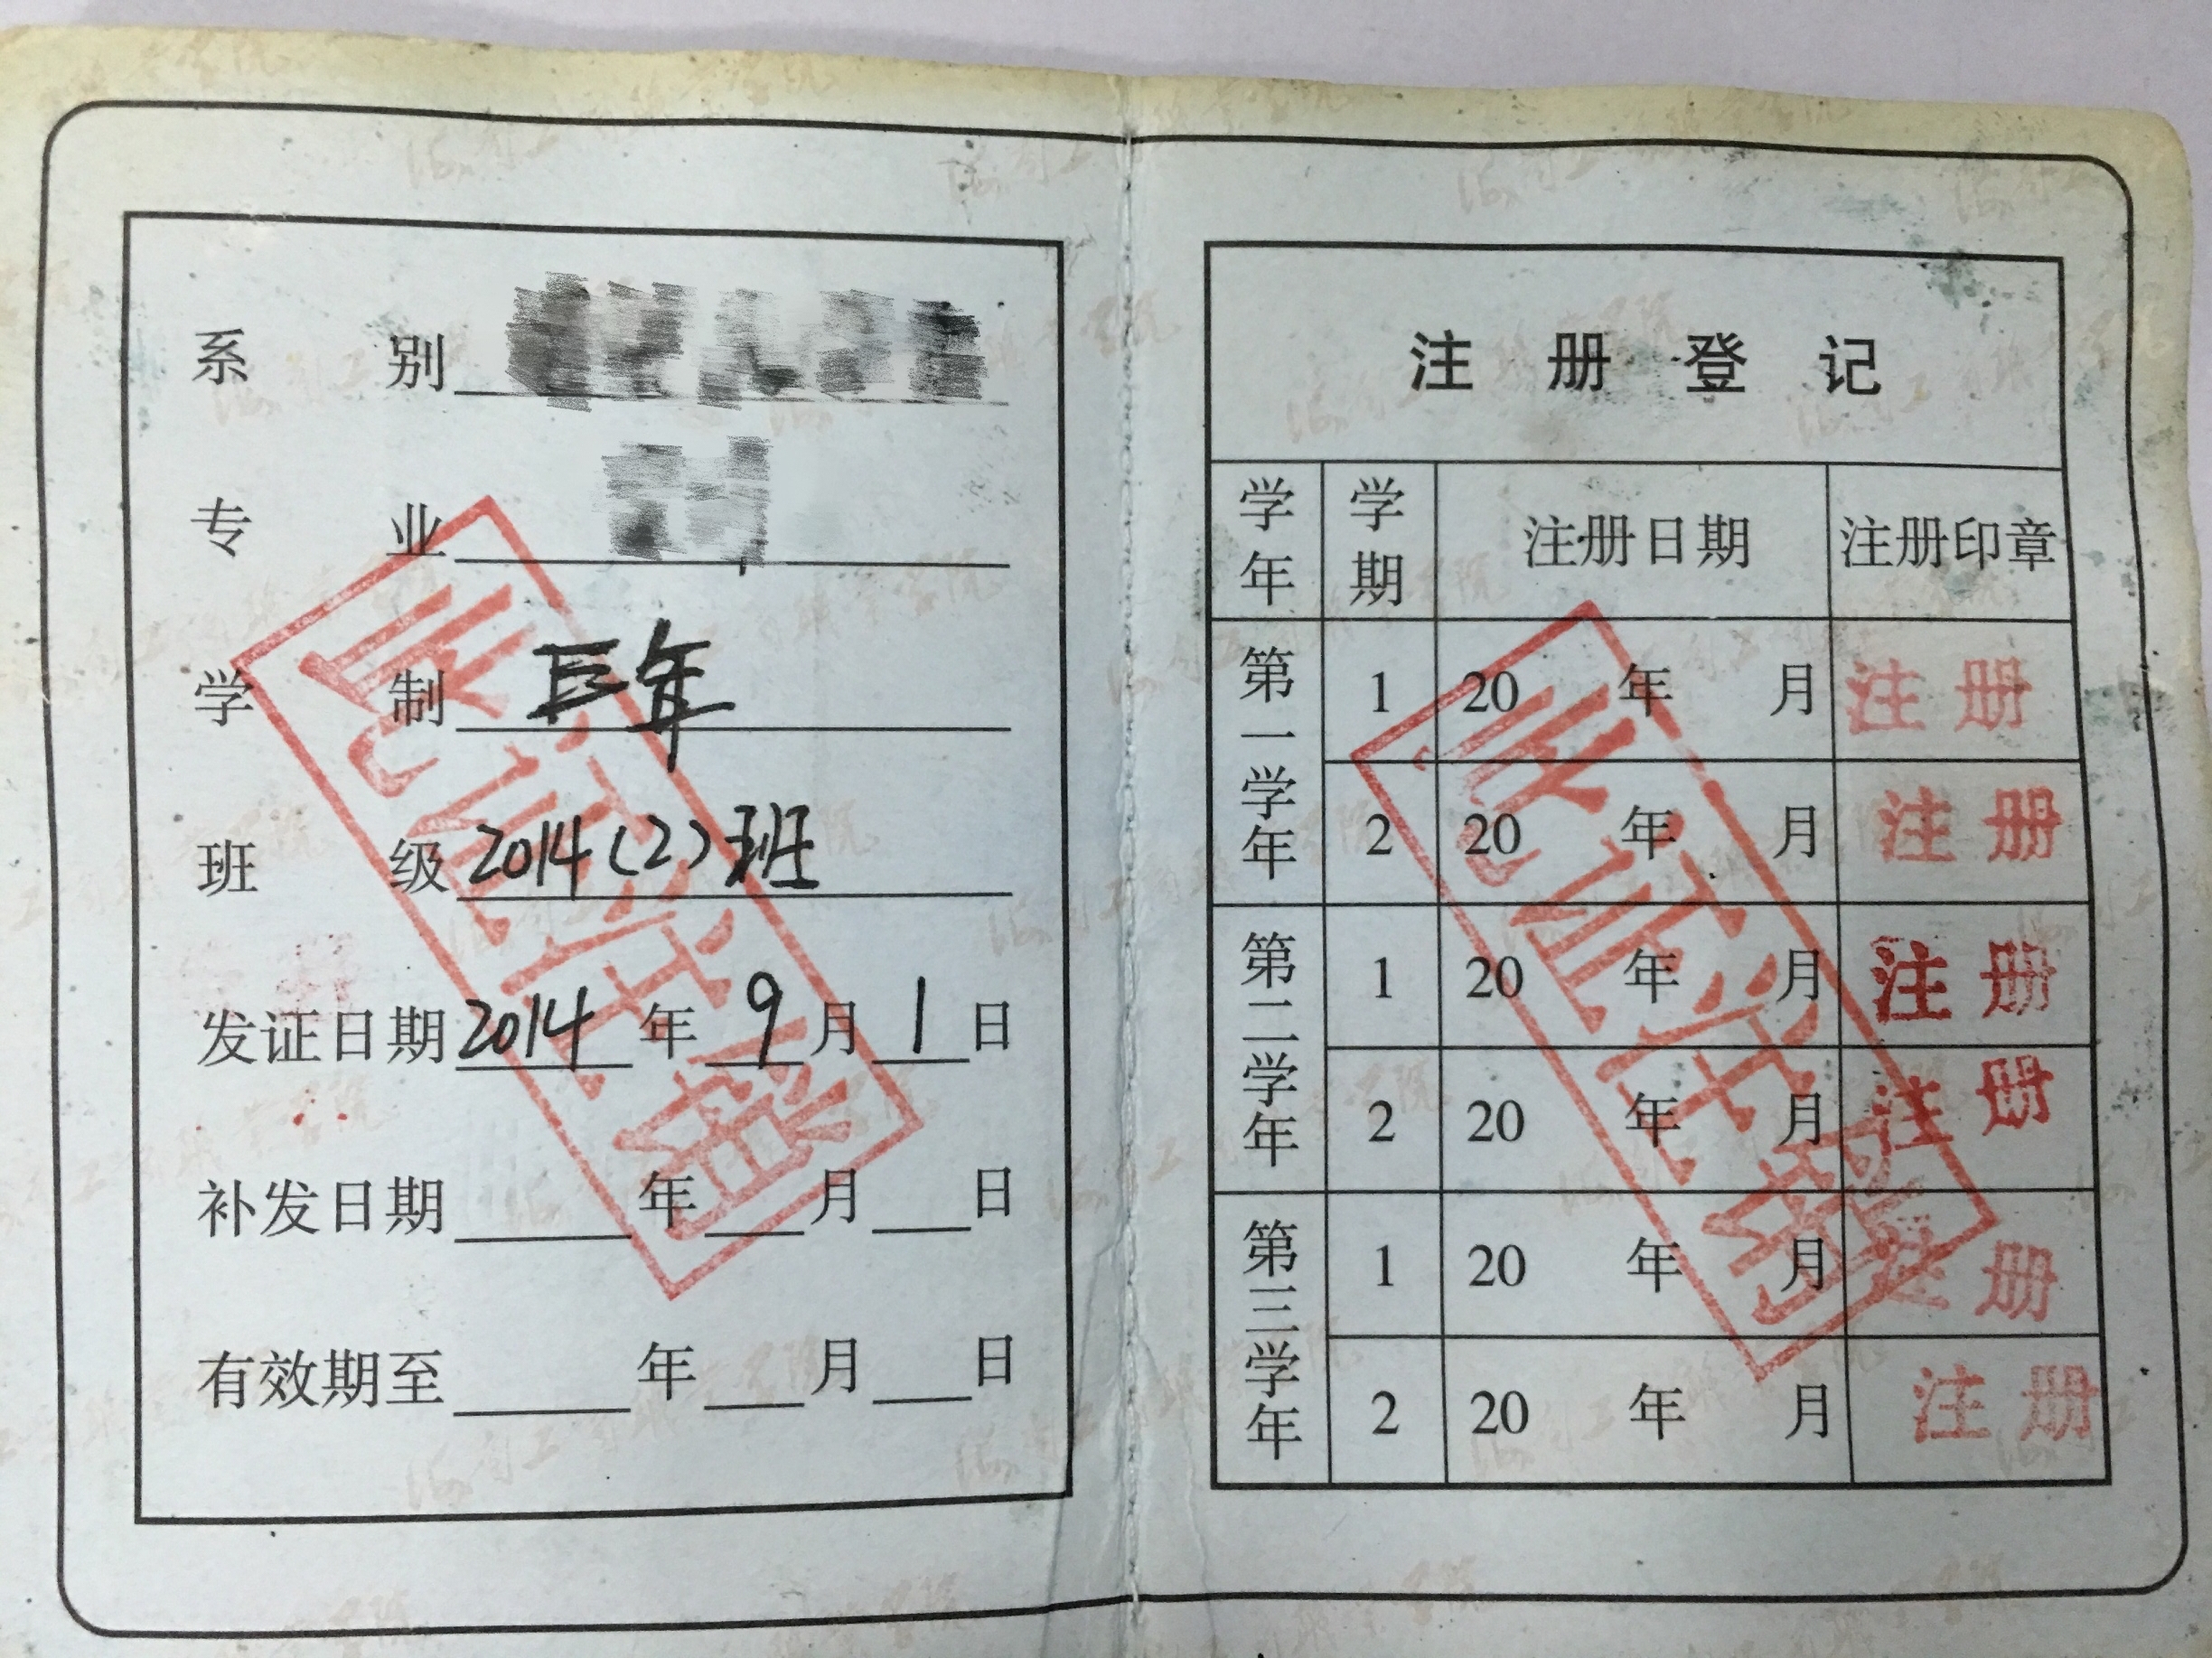 系别
专业
学制 三年
班级 2014(2)班
发证日期 2014 年 9 月 1 日
补发日期 年 月 日
有效期至 年 月 日
注册登记
学年 学期 注册日期 注册印章
第一学年 1 20 年 月 注册
2 20 年 月 注册
第二学年 1 20 年 月 注册
2 20 年 月 注册
第三学年 1 20 年 月 注册
2 20 年 月 注册